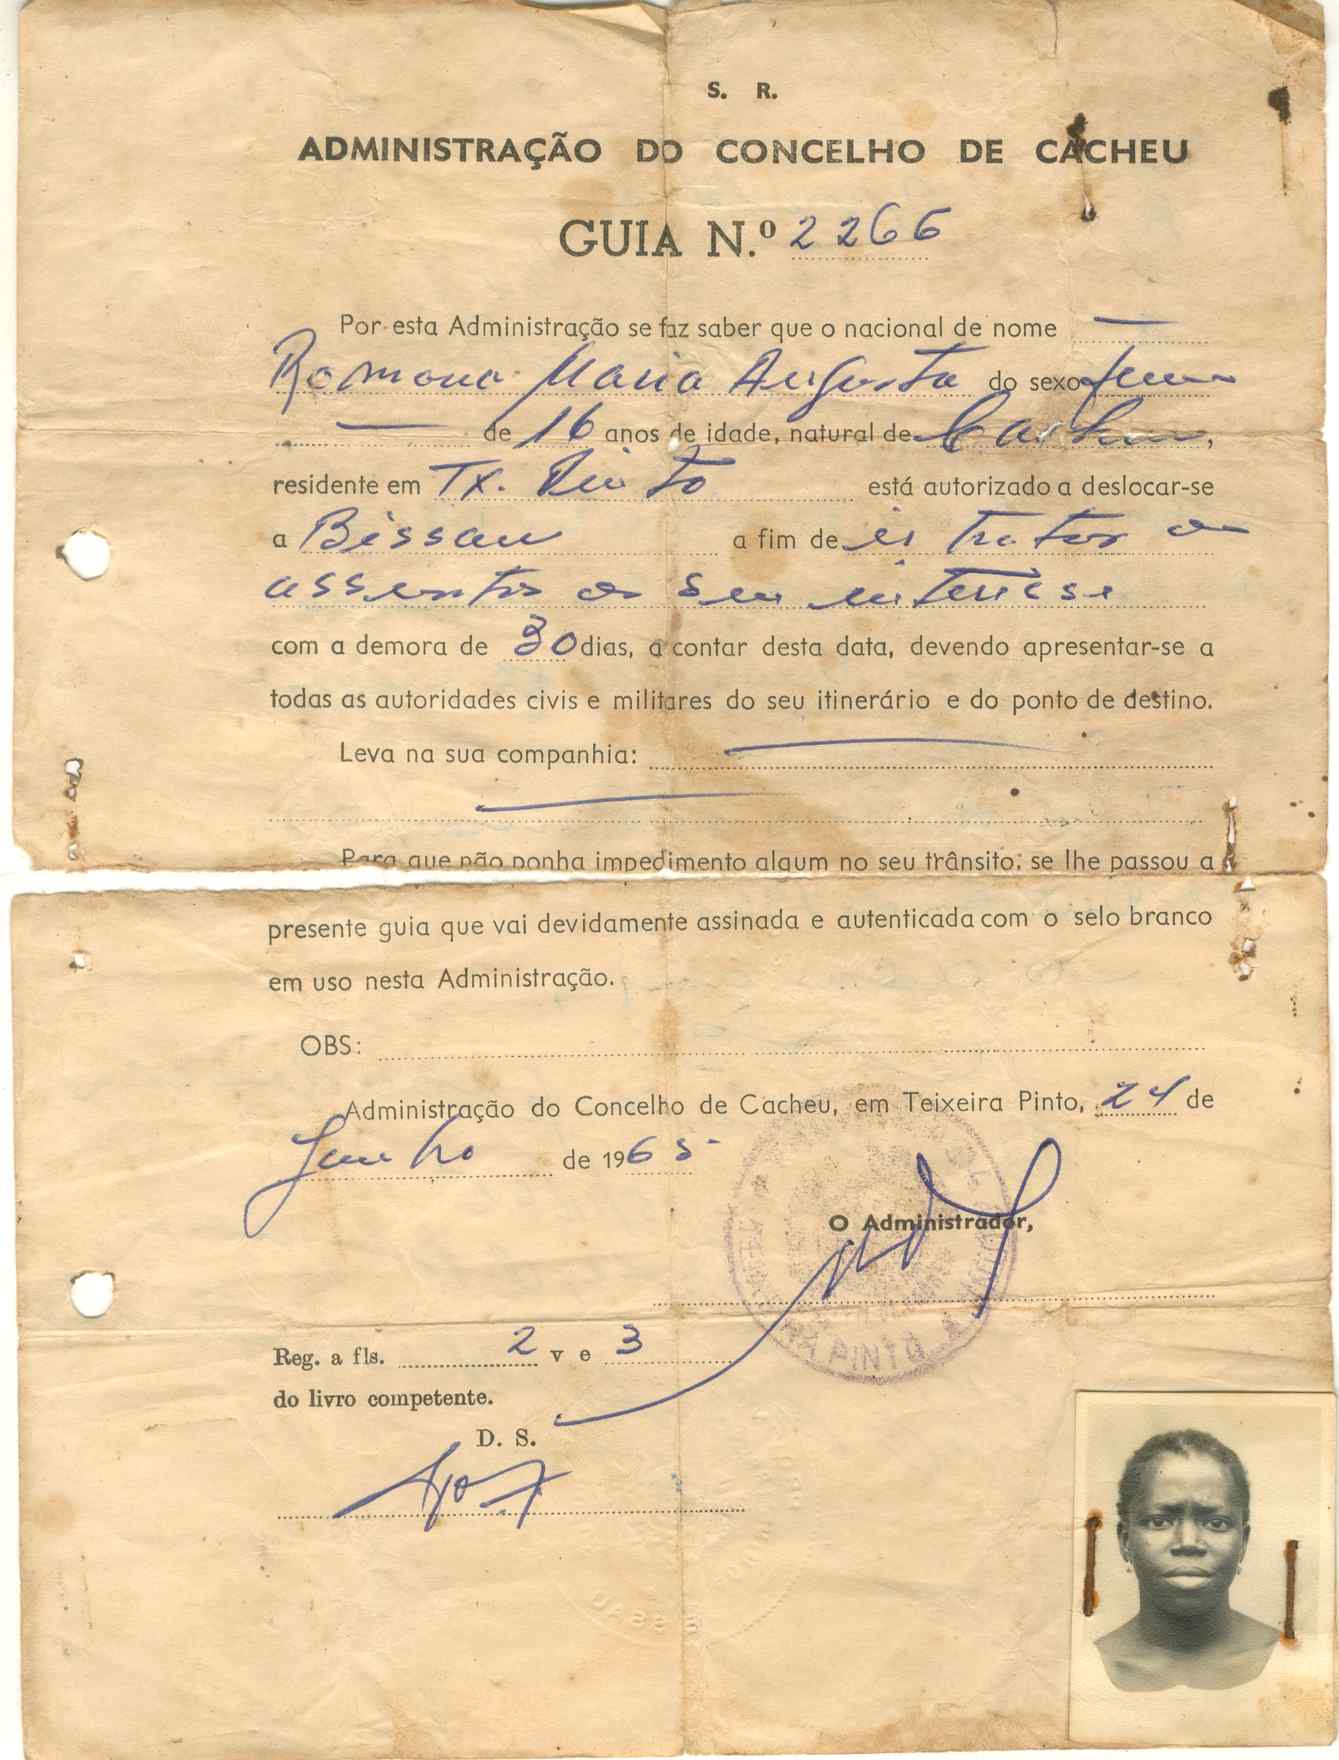 S. R.
ADMINISTRAÇÃO DO CONCELHO DE CACHEU
GUIA N.º 2266
Por esta Administração se faz saber que o nacional de nome
Romana Maria Augusta do sexo
de 16 anos de idade, natural de Cacheu,
residente em Tx. Pinto está autorizado a deslocar-se
a Bissau a fim de ir tratar de
assuntos de seu interêsse
com a demora de 30 dias, a contar desta data, devendo apresentar-se a
todas as autoridades civis e militares do seu itinerário e do ponto de destino.
Leva na sua companhia:
Para que não ponha impedimento algum no seu trânsito, se lhe passou a
presente guia que vai devidamente assinada e autenticada com o selo branco
em uso nesta Administração.
OBS:
Administração do Concelho de Cacheu, em Teixeira Pinto, 24 de
de 1965
O Administrador,
PINTO
Reg. a fls. 2 v e 3
do livro competente.
D. S.
BISSAU